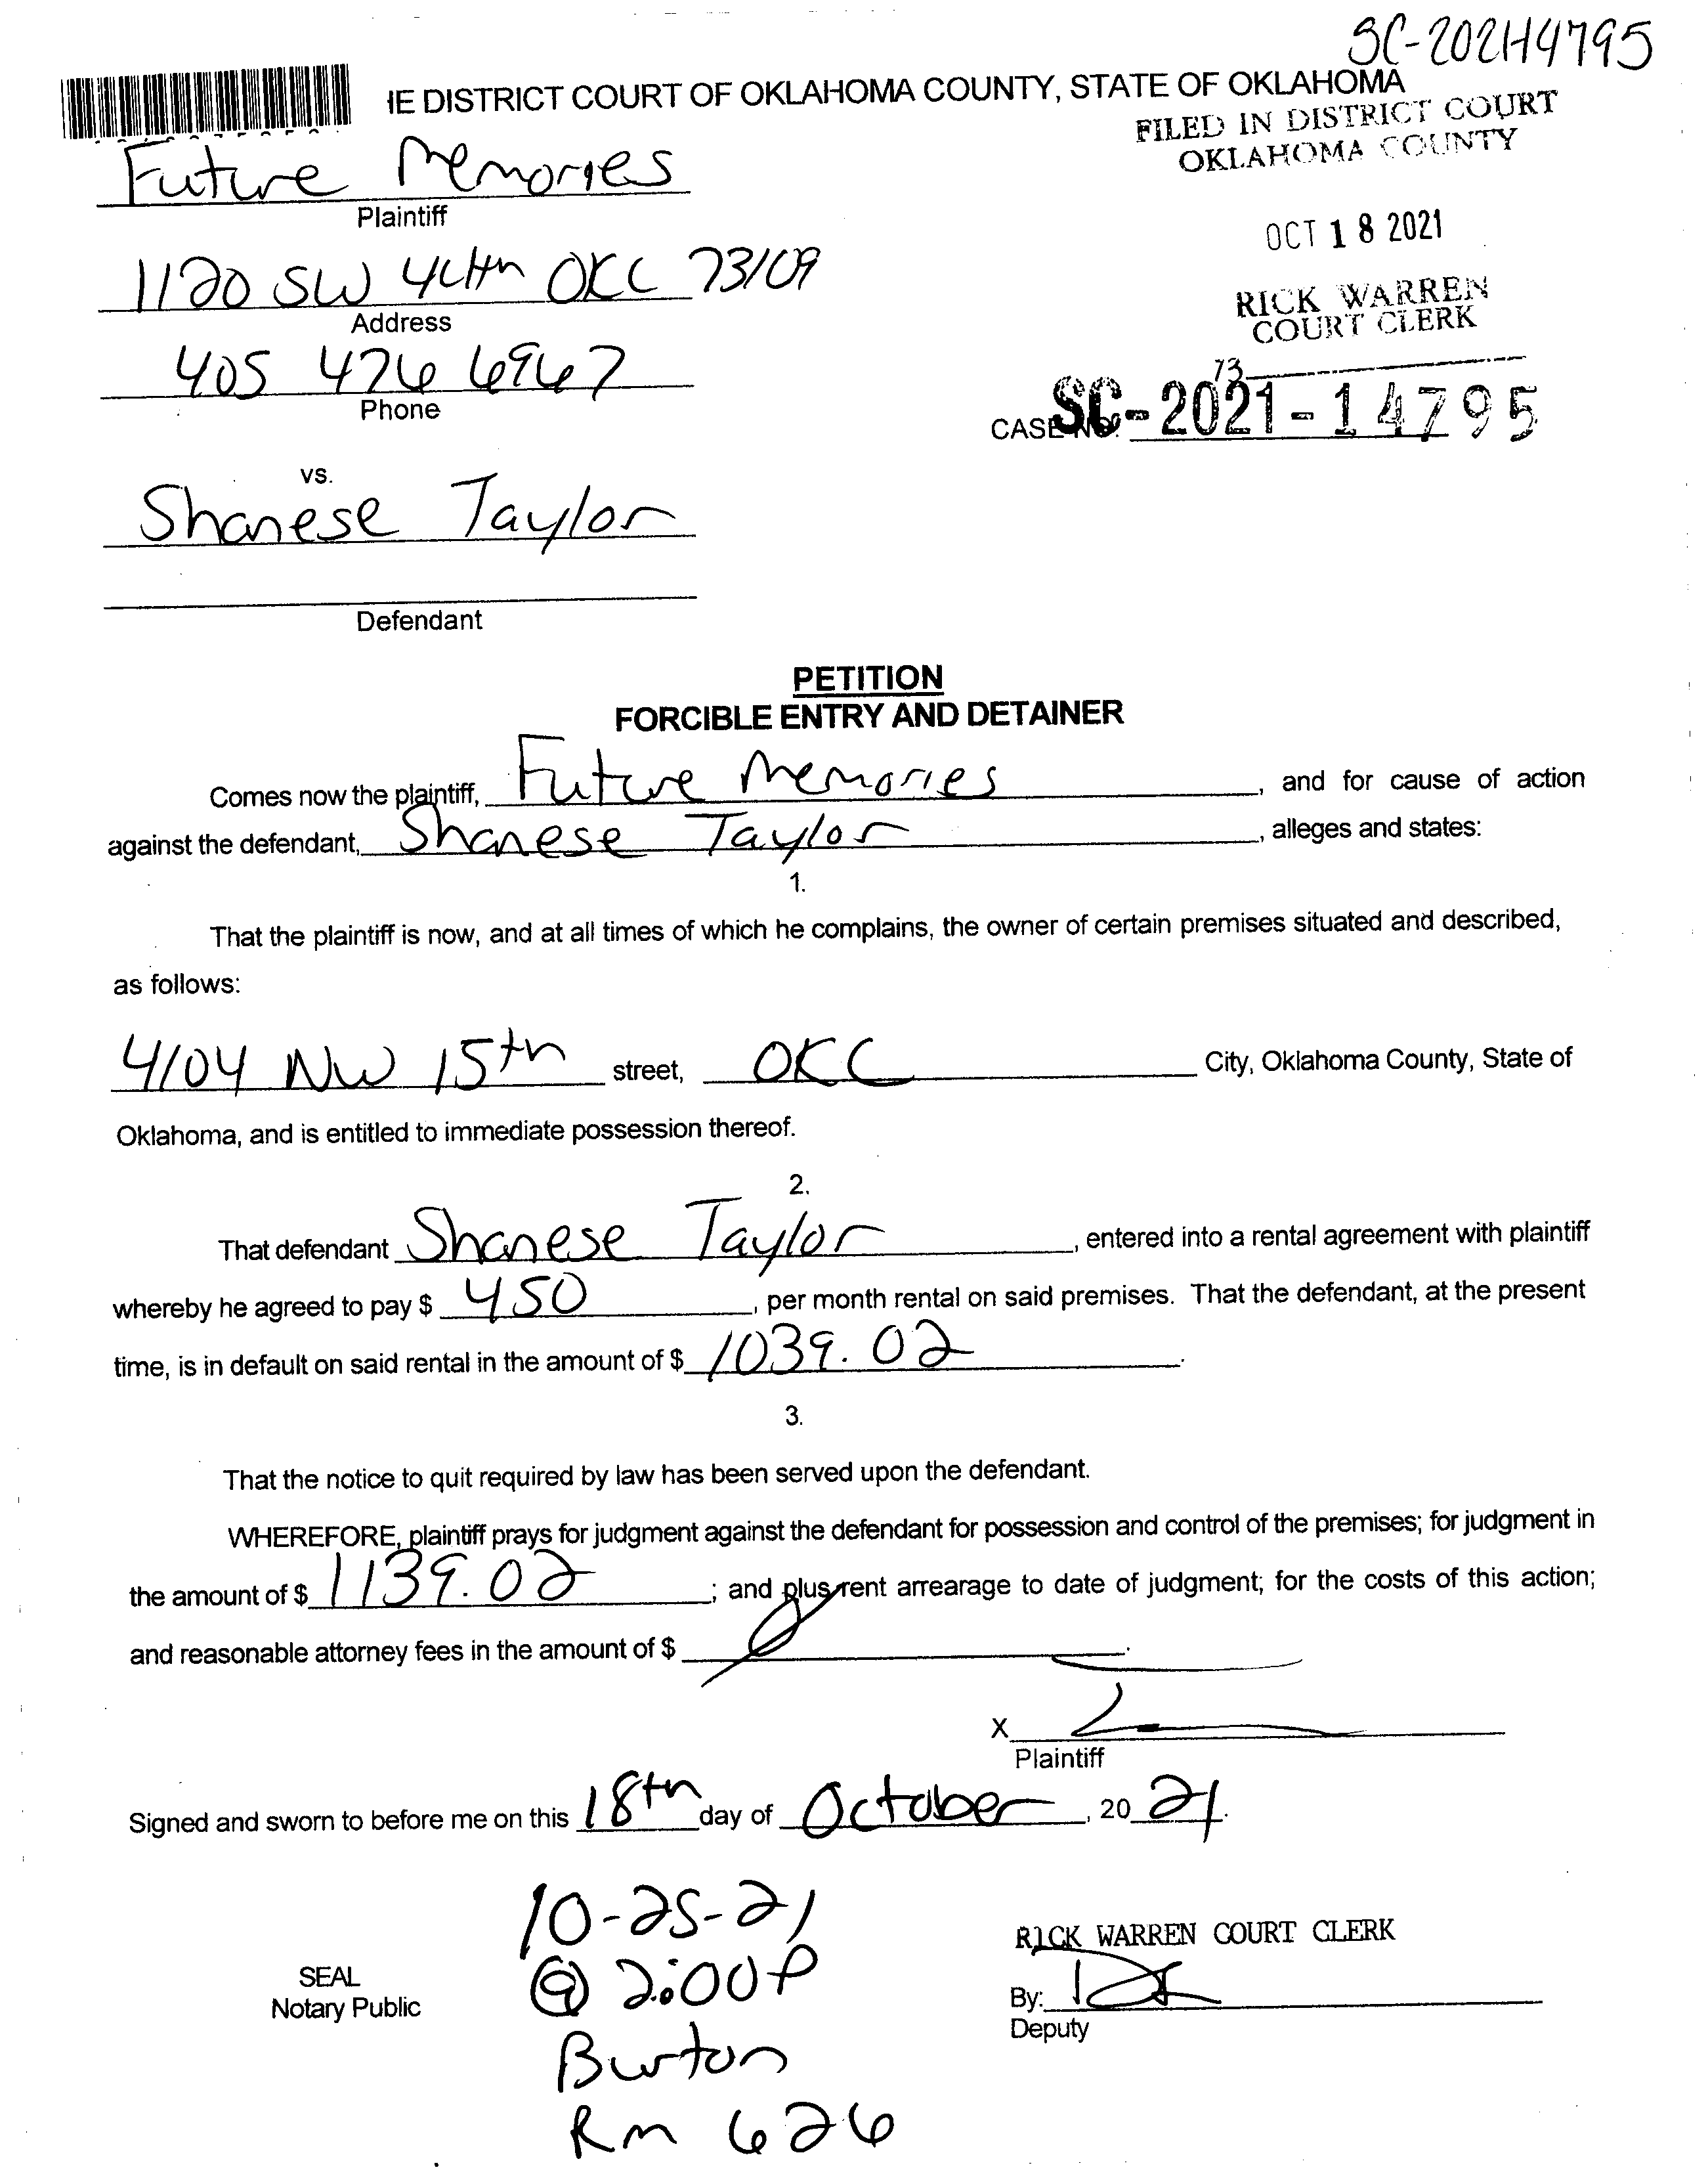 SC-2021-14795
IE DISTRICT COURT OF OKLAHOMA COUNTY, STATE OF OKLAHOMA
FILED IN DISTRICT COURT
OKLAHOMA COUNTY
Future Memories
Plaintiff
OCT 18 2021
1120 SW 44th OKC 73109
Address
RICK WARREN
COURT CLERK
405 476 6967
Phone
73
CASE NO. SC-2021-14795
vs.
Shanese Taylor
Defendant
PETITION
FORCIBLE ENTRY AND DETAINER
Comes now the plaintiff, Future Memories, and for cause of action
against the defendant, Shanese Taylor, alleges and states:
1.
That the plaintiff is now, and at all times of which he complains, the owner of certain premises situated and described,
as follows:
4104 NW 15th street, OKC City, Oklahoma County, State of
Oklahoma, and is entitled to immediate possession thereof.
2.
That defendant Shanese Taylor, entered into a rental agreement with plaintiff
whereby he agreed to pay $ 450, per month rental on said premises. That the defendant, at the present
time, is in default on said rental in the amount of $ 1039.02.
3.
That the notice to quit required by law has been served upon the defendant.
WHEREFORE, plaintiff prays for judgment against the defendant for possession and control of the premises; for judgment in
the amount of $ 1139.02; and plus rent arrearage to date of judgment; for the costs of this action;
and reasonable attorney fees in the amount of $ 0.
X
Plaintiff
Signed and sworn to before me on this 18th day of October, 20 21.
10-25-21
@ 2:00P
Burton
Rm 626
SEAL
Notary Public
RICK WARREN COURT CLERK
By:
Deputy